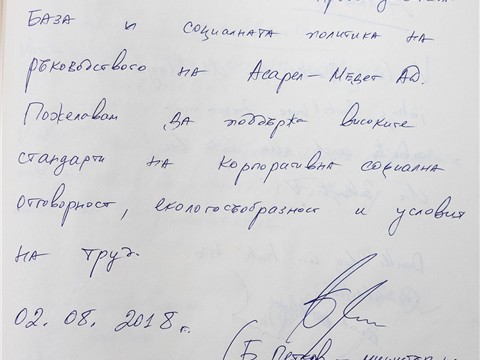 база и социалната политика на
ръководството на Асарел-Медет АД.
Пожелавам да поддържа високите
стандарти на корпоративна социална
отговорност, екологосъобразност и условия
на труд.
02. 08. 2018 г.
(Б. Петков - министър